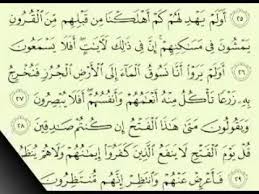 ٢٥ أَوَلَمْ يَهْدِ لَهُمْ كَمْ أَهْلَكْنَا مِن قَبْلِهِم مِّنَ ٱلْقُرُونِ
يَمْشُونَ فِى مَسَٰكِنِهِمْ إِنَّ فِى ذَٰلِكَ لَءَايَٰتٍ أَفَلَا يَسْمَعُونَ
٢٦ أَوَلَمْ يَرَوْا۟ أَنَّا نَسُوقُ ٱلْمَآءَ إِلَى ٱلْأَرْضِ ٱلْجُرُزِ فَنُخْرِجُ
بِهِۦ زَرْعًا تَأْكُلُ مِنْهُ أَنْعَٰمُهُمْ وَأَنفُسُهُمْ أَفَلَا يُبْصِرُونَ ٢٧
وَيَقُولُونَ مَتَىٰ هَٰذَا ٱلْفَتْحُ إِن كُنتُمْ صَٰدِقِينَ ٢٨
قُلْ يَوْمَ ٱلْفَتْحِ لَا يَنفَعُ ٱلَّذِينَ كَفَرُوٓا۟ إِيمَٰنُهُمْ وَلَا هُمْ
٢٩ فَأَعْرِضْ عَنْهُمْ وَٱنتَظِرْ إِنَّهُم مُّنتَظِرُونَ